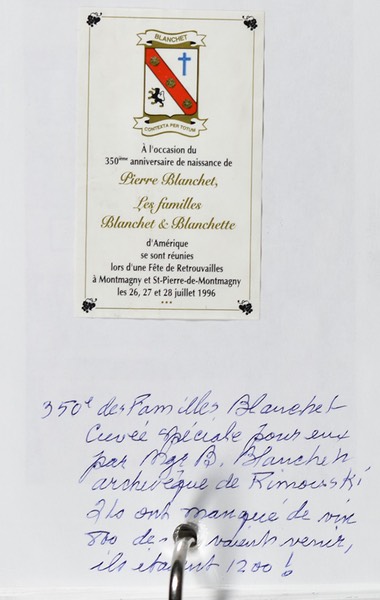 BLANCHET
CONTEXTA PER TOTUM
À l'occasion du
350ième anniversaire de naissance de
Pierre Blanchet,
Les familles
Blanchet & Blanchette
d'Amérique
se sont réunies
lors d'une Fête de Retrouvailles
à Montmagny et St-Pierre-de-Montmagny
les 26, 27 et 28 juillet 1996
***
350e des Familles Blanchet
Cuvée spéciale pour eux
par Mgr B. Blanchet
archevêque de Rimouski
Ils ont manqué de vin
800 de venir,
ils étaient 1200 !